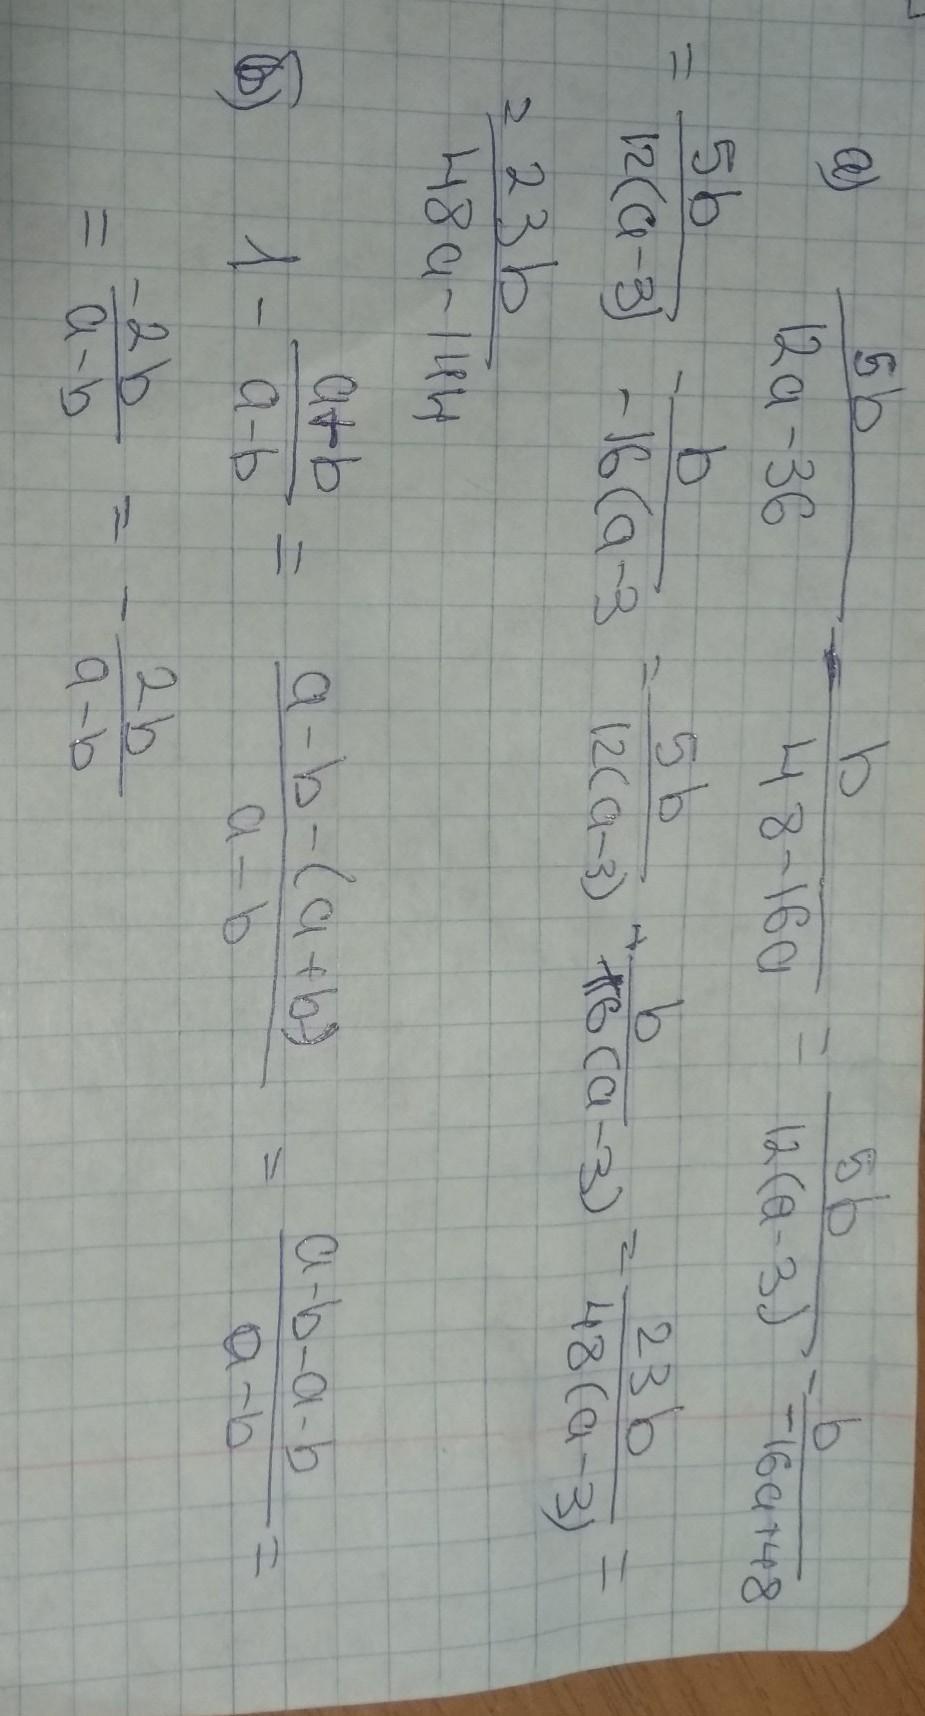 а) 5b/(12a-36) - b/(48-16a) = 5b/(12(a-3)) - b/(-16a+48)
= 5b/(12(a-3)) - b/(-16(a-3) = 5b/(12(a-3)) + b/(16(a-3)) = 23b/(48(a-3)) =
= 23b/(48a-144)
б) 1 - (a+b)/(a-b) = (a-b-(a+b))/(a-b) = (a-b-a-b)/(a-b) =
= -2b/(a-b) = - 2b/(a-b)